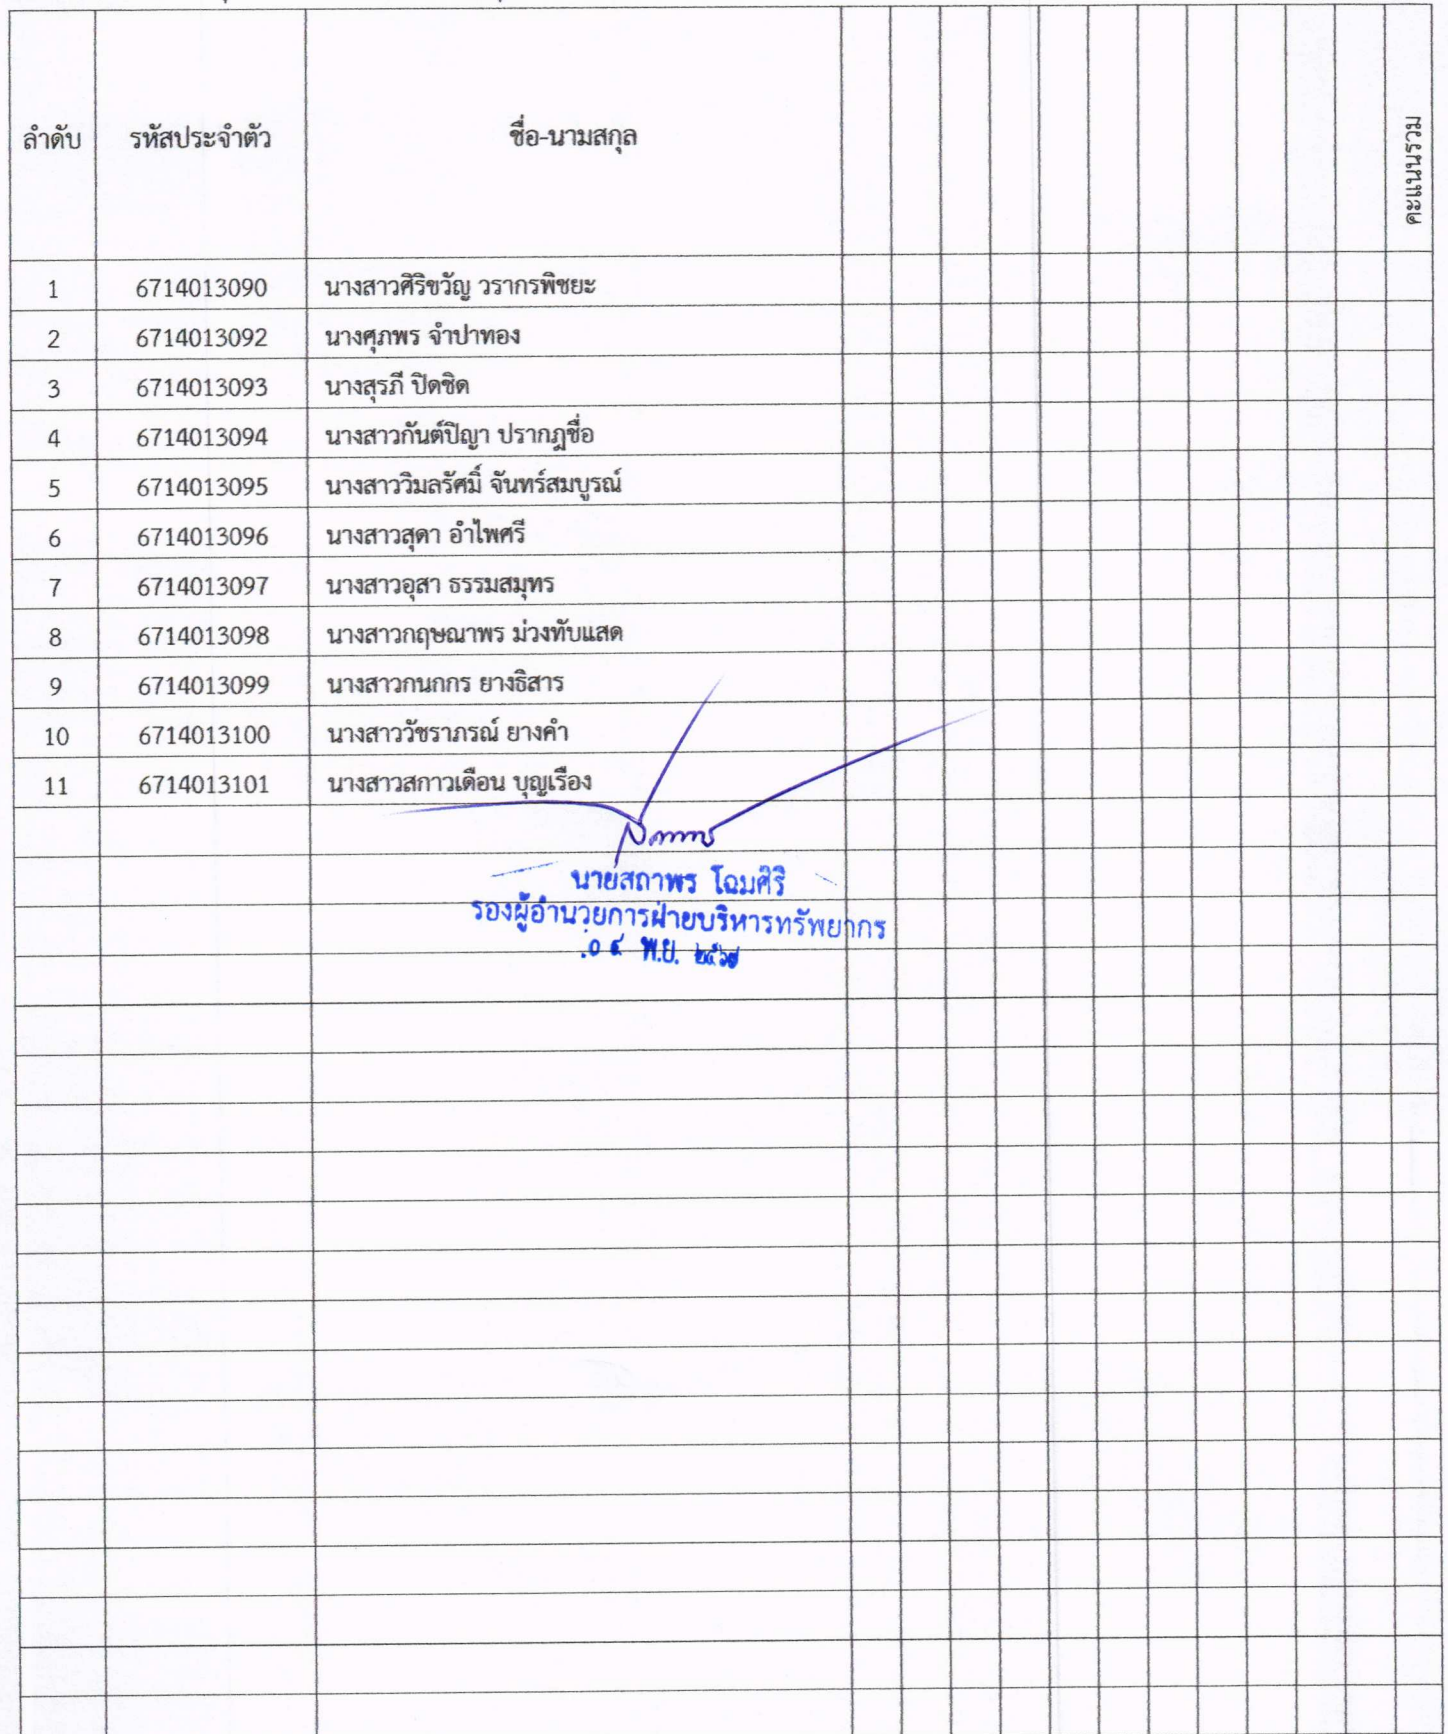 ลำดับ รหัสประจำตัว ชื่อ-นามสกุล คะแนนรวม
1 6714013090 นางสาวศิริขวัญ วรากรพิชยะ
2 6714013092 นางศุภพร จำปาทอง
3 6714013093 นางสุรภี ปิดชิด
4 6714013094 นางสาวกันต์ปิญา ปรากฏชื่อ
5 6714013095 นางสาววิมลรัศมิ์ จันทร์สมบูรณ์
6 6714013096 นางสาวสุดา อำไพศรี
7 6714013097 นางสาวอุสา ธรรมสมุทร
8 6714013098 นางสาวกฤษณาพร ม่วงทับแสด
9 6714013099 นางสาวกนกกร ยางธิสาร
10 6714013100 นางสาววัชราภรณ์ ยางคำ
11 6714013101 นางสาวสกาวเดือน บุญเรือง
นายสถาพร โฉมศิริ
รองผู้อำนวยการฝ่ายบริหารทรัพยากร
พ.ย. ๒๕๖๗